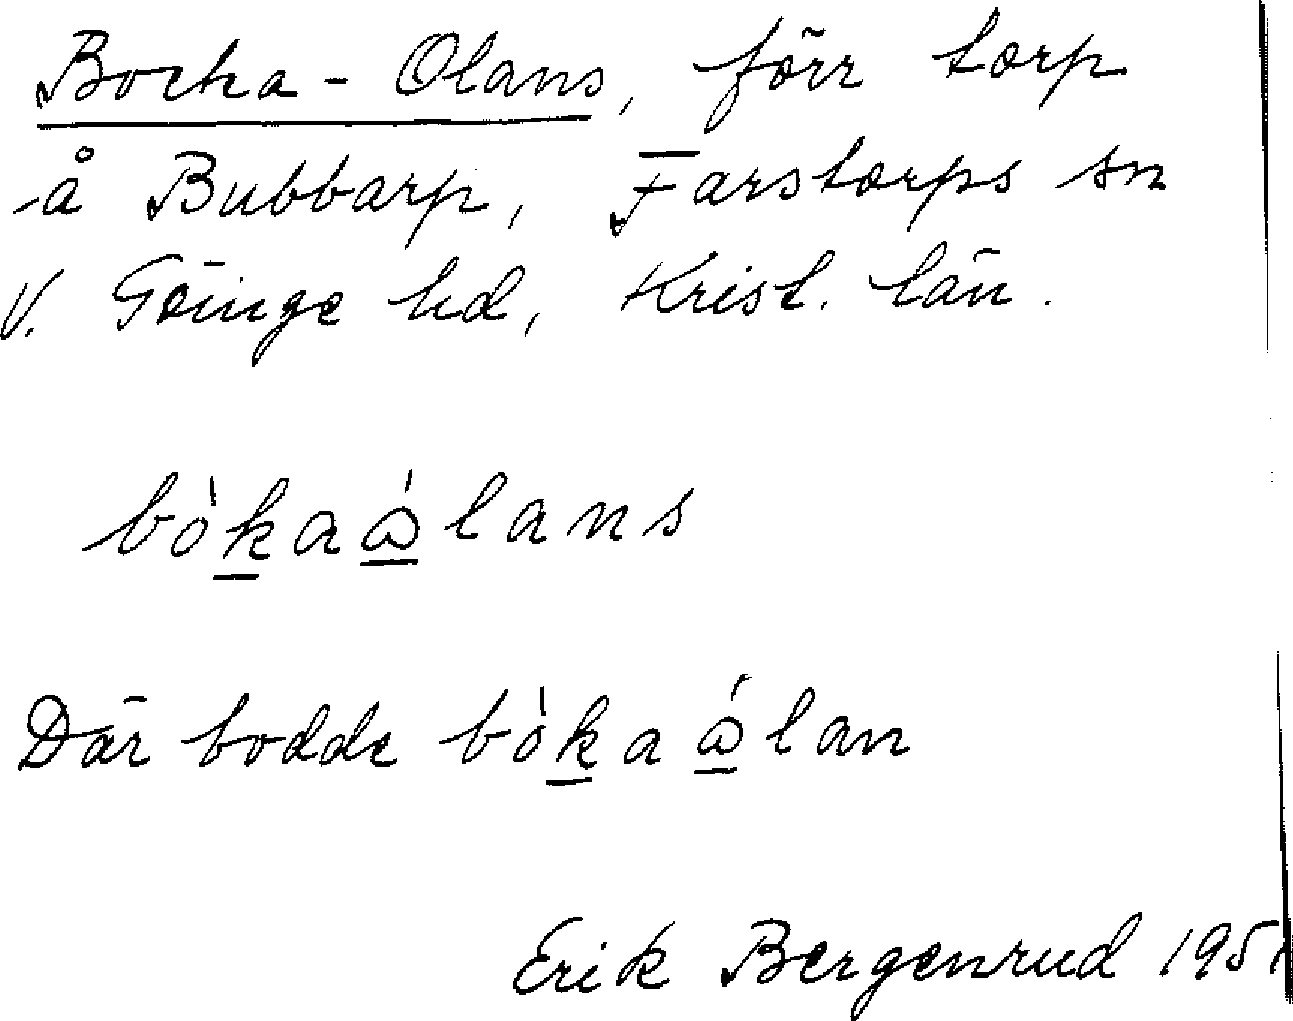 Bocka-Olans, förr torp
å Bubbarp, Farstorps sn
V. Göinge hd, Krist. län.
bò̲kaålans
Där bodde bò̲kaålan
Erik Bergenrud